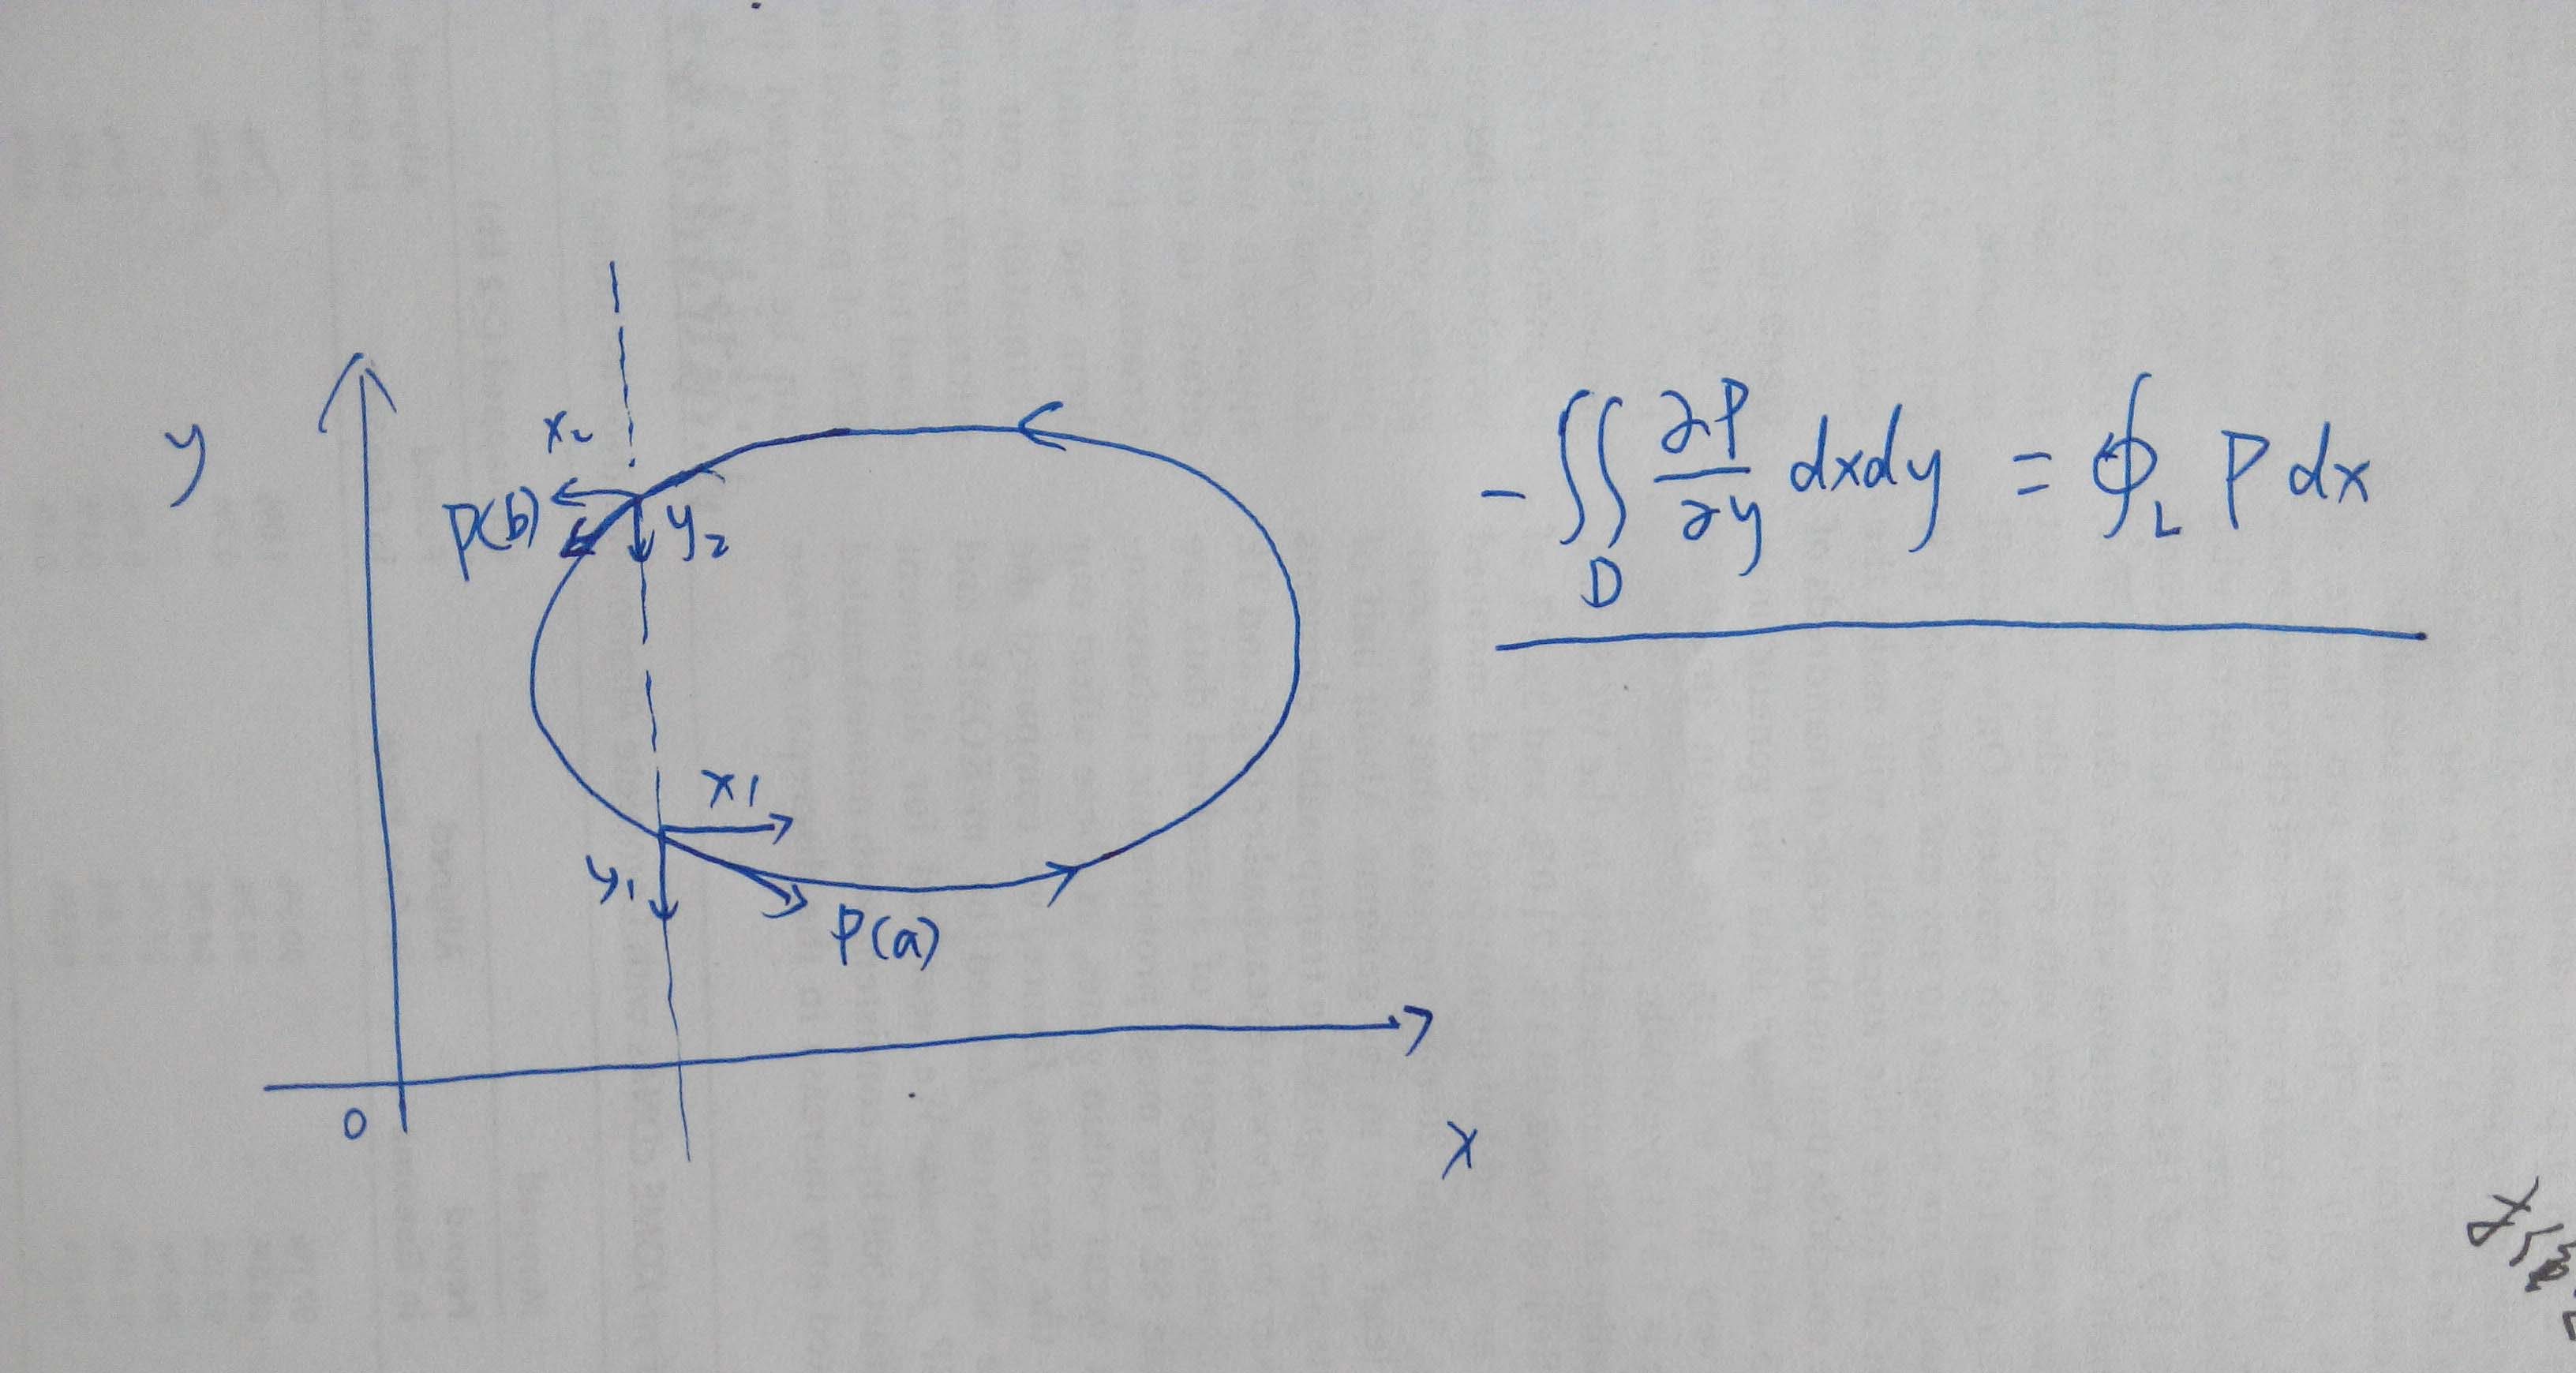 y
x₂
P(b)
y₂
x₁
y₁
P(a)
0
x
-∬_D ∂P/∂y dxdy = ∮_L P dx